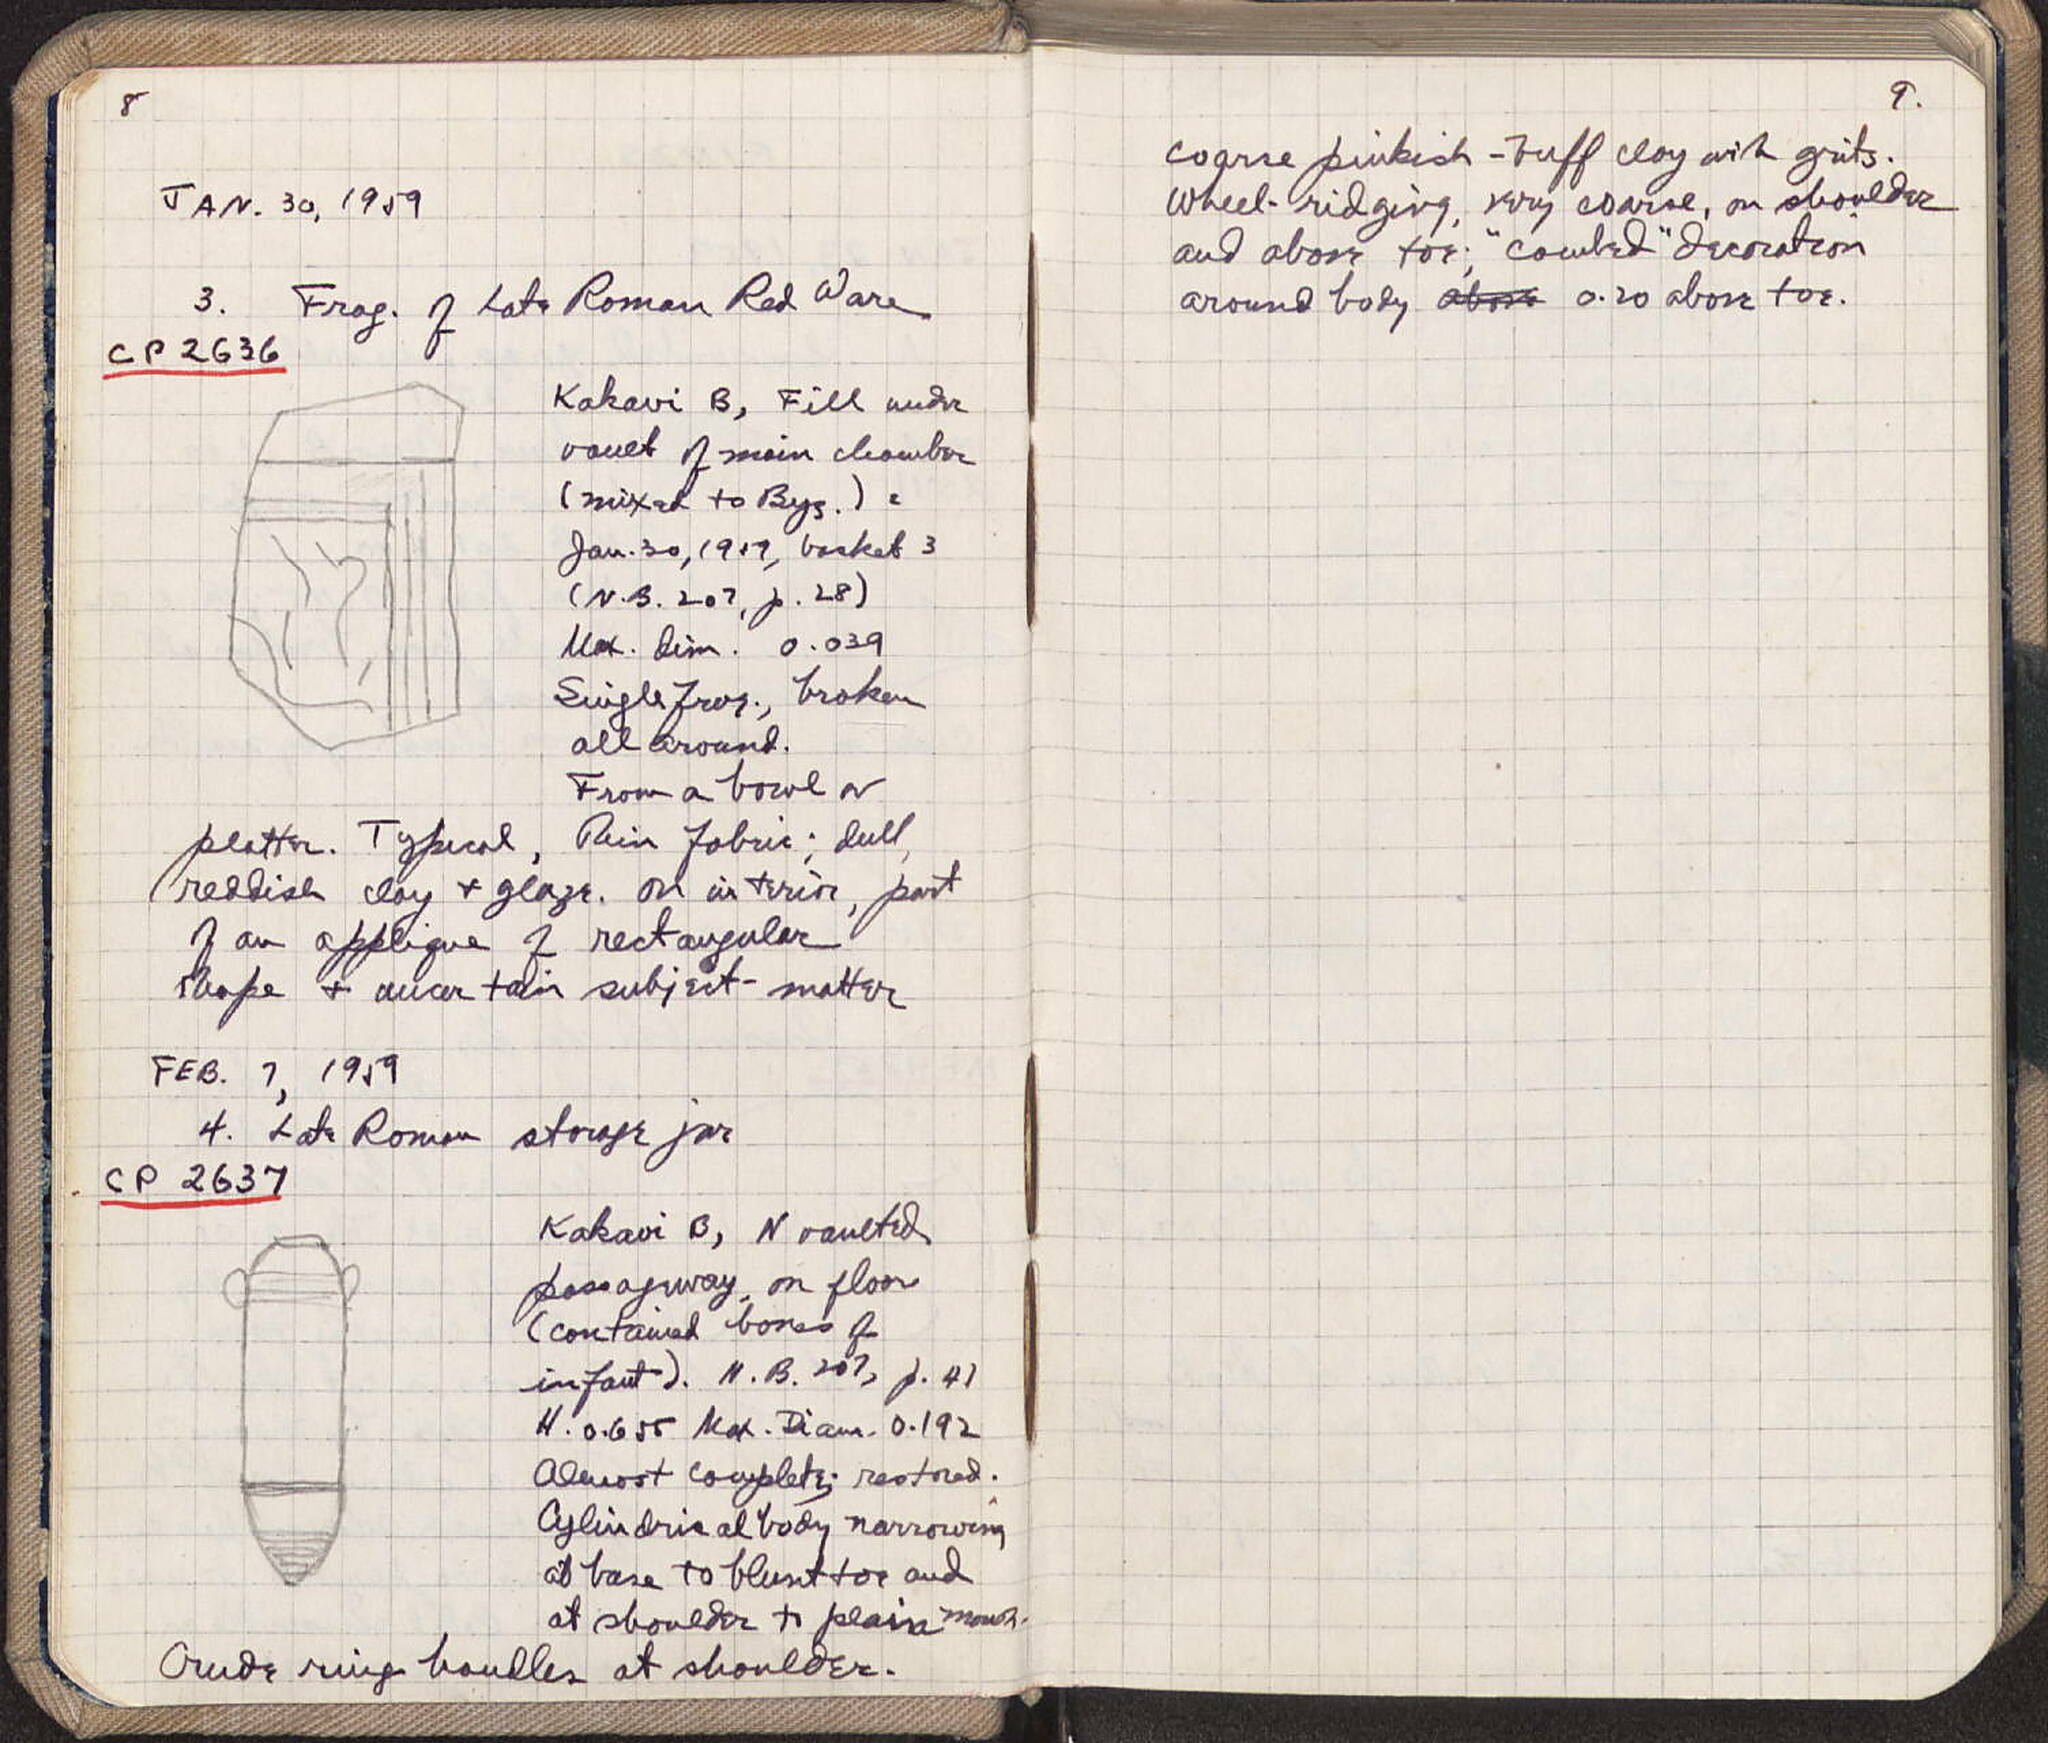 8
JAN. 30, 1959
3. Frag. of Late Roman Red Ware
CP 2636
Kakavi B, Fill under
vault of main chamber
(mixed to Byz.)
Jan. 30, 1959, basket 3
(N.B. 207, p. 28)
Max. dim. 0.039
Single frag., broken
all around.
From a bowl or
platter. Typical, thin fabric; dull,
reddish clay + glaze. On interior, part
of an applique of rectangular
shape + uncertain subject-matter
FEB. 7, 1959
4. Late Roman storage jar
CP 2637
Kakavi B, N vaulted
passageway, on floor
(contained bones of
infant). N.B. 207, p. 41
H. 0.655 Max. Diam. 0.192
Almost complete; restored.
Cylindrical body narrowing
at base to blunt toe and
at shoulder to plain mouth.
Crude ring handles at shoulder.
9.
coarse pinkish-buff clay with grits.
Wheel-ridging, very coarse, on shoulder
and above toe; "combed" decoration
around body above 0.20 above toe.